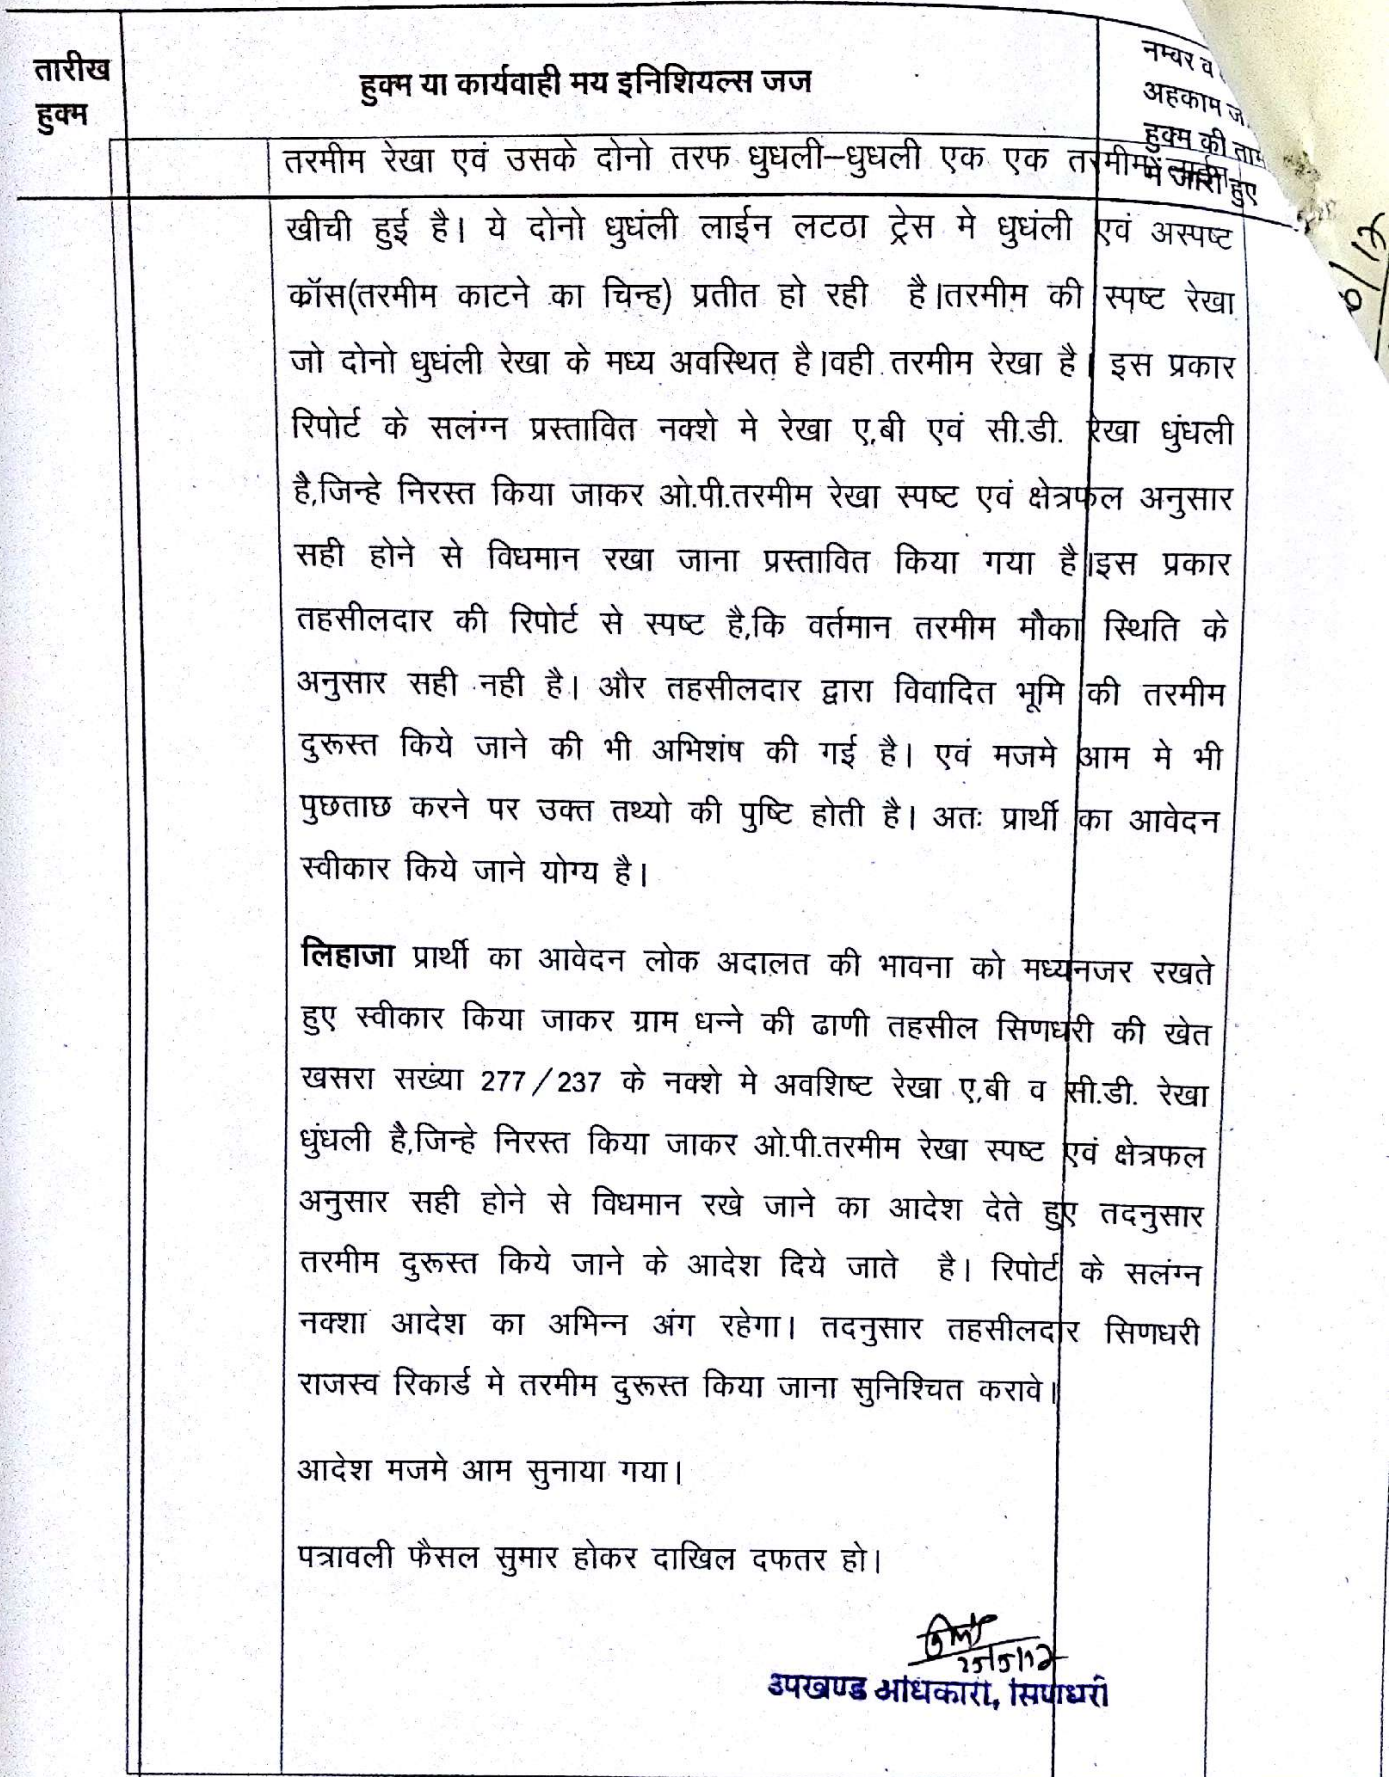 तारीख
हुक्म
हुक्म या कार्यवाही मय इनिशियल्स जज
नम्बर व
अहकाम
हुक्म की
में जारी हुए
तरमीम रेखा एवं उसके दोनो तरफ धुधली–धुधली एक एक तरमीम
खीची हुई है। ये दोनो धुधंली लाईन लटठा ट्रेस मे धुधंली एवं अस्पष्ट
क्रॉस(तरमीम काटने का चिन्ह) प्रतीत हो रही है।तरमीम की स्पष्ट रेखा
जो दोनो धुधंली रेखा के मध्य अवस्थित है।वही तरमीम रेखा है। इस प्रकार
रिपोर्ट के सलंग्न प्रस्तावित नक्शे मे रेखा ए,बी एवं सी.डी. रेखा धुंधली
है,जिन्हे निरस्त किया जाकर ओ.पी.तरमीम रेखा स्पष्ट एवं क्षेत्रफल अनुसार
सही होने से विधमान रखा जाना प्रस्तावित किया गया है।इस प्रकार
तहसीलदार की रिपोर्ट से स्पष्ट है,कि वर्तमान तरमीम मौका स्थिति के
अनुसार सही नही है। और तहसीलदार द्वारा विवादित भूमि की तरमीम
दुरूस्त किये जाने की भी अभिशंष की गई है। एवं मजमे आम मे भी
पुछताछ करने पर उक्त तथ्यो की पुष्टि होती है। अतः प्रार्थी का आवेदन
स्वीकार किये जाने योग्य है।
लिहाजा प्रार्थी का आवेदन लोक अदालत की भावना को मध्यनजर रखते
हुए स्वीकार किया जाकर ग्राम धन्ने की ढाणी तहसील सिणधरी की खेत
खसरा सख्ंया 277/237 के नक्शे मे अवशिष्ट रेखा ए,बी व सी.डी. रेखा
धुंधली है,जिन्हे निरस्त किया जाकर ओ.पी.तरमीम रेखा स्पष्ट एवं क्षेत्रफल
अनुसार सही होने से विधमान रखे जाने का आदेश देते हुए तदनुसार
तरमीम दुरूस्त किये जाने के आदेश दिये जाते है। रिपोर्ट के सलंग्न
नक्शा आदेश का अभिन्न अंग रहेगा। तदनुसार तहसीलदार सिणधरी
राजस्व रिकार्ड मे तरमीम दुरूस्त किया जाना सुनिश्चित करावे।
आदेश मजमे आम सुनाया गया।
पत्रावली फैसल सुमार होकर दाखिल दफतर हो।
25/5/17
उपखण्ड अधिकारी, सिणधरी